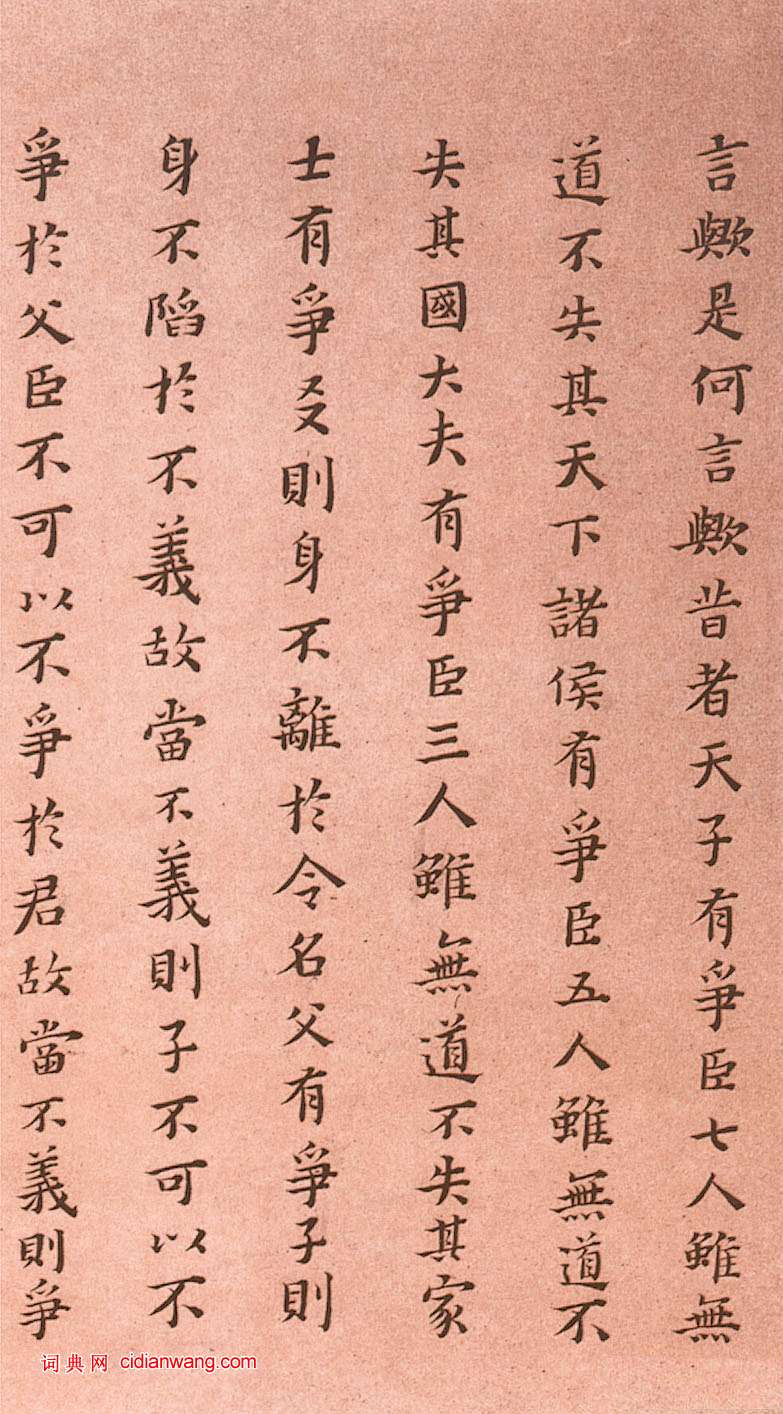 言歟是何言歟昔者天子有爭臣七人雖無
道不失其天下諸侯有爭臣五人雖無道不
失其國大夫有爭臣三人雖無道不失其家
士有爭友則身不離於令名父有爭子則
身不陷於不義故當不義則子不可以不
爭於父臣不可以不爭於君故當不義則爭
词典网 cidianwang.com